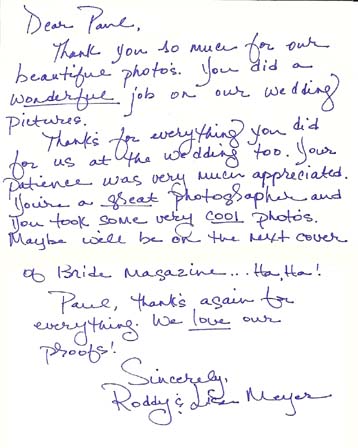 Dear Paul,
Thank you so much for our
beautiful photos. You did a
wonderful job on our wedding
pictures.
Thanks for everything you did
for us at the wedding too. Your
patience was very much appreciated.
You're a great photographer and
you took some very cool photos.
Maybe we'll be on the next cover
of Bride Magazine... Ha, Ha!
Paul, thanks again for
everything. We love our
proofs!
Sincerely,
Roddy & Lisa Meyer